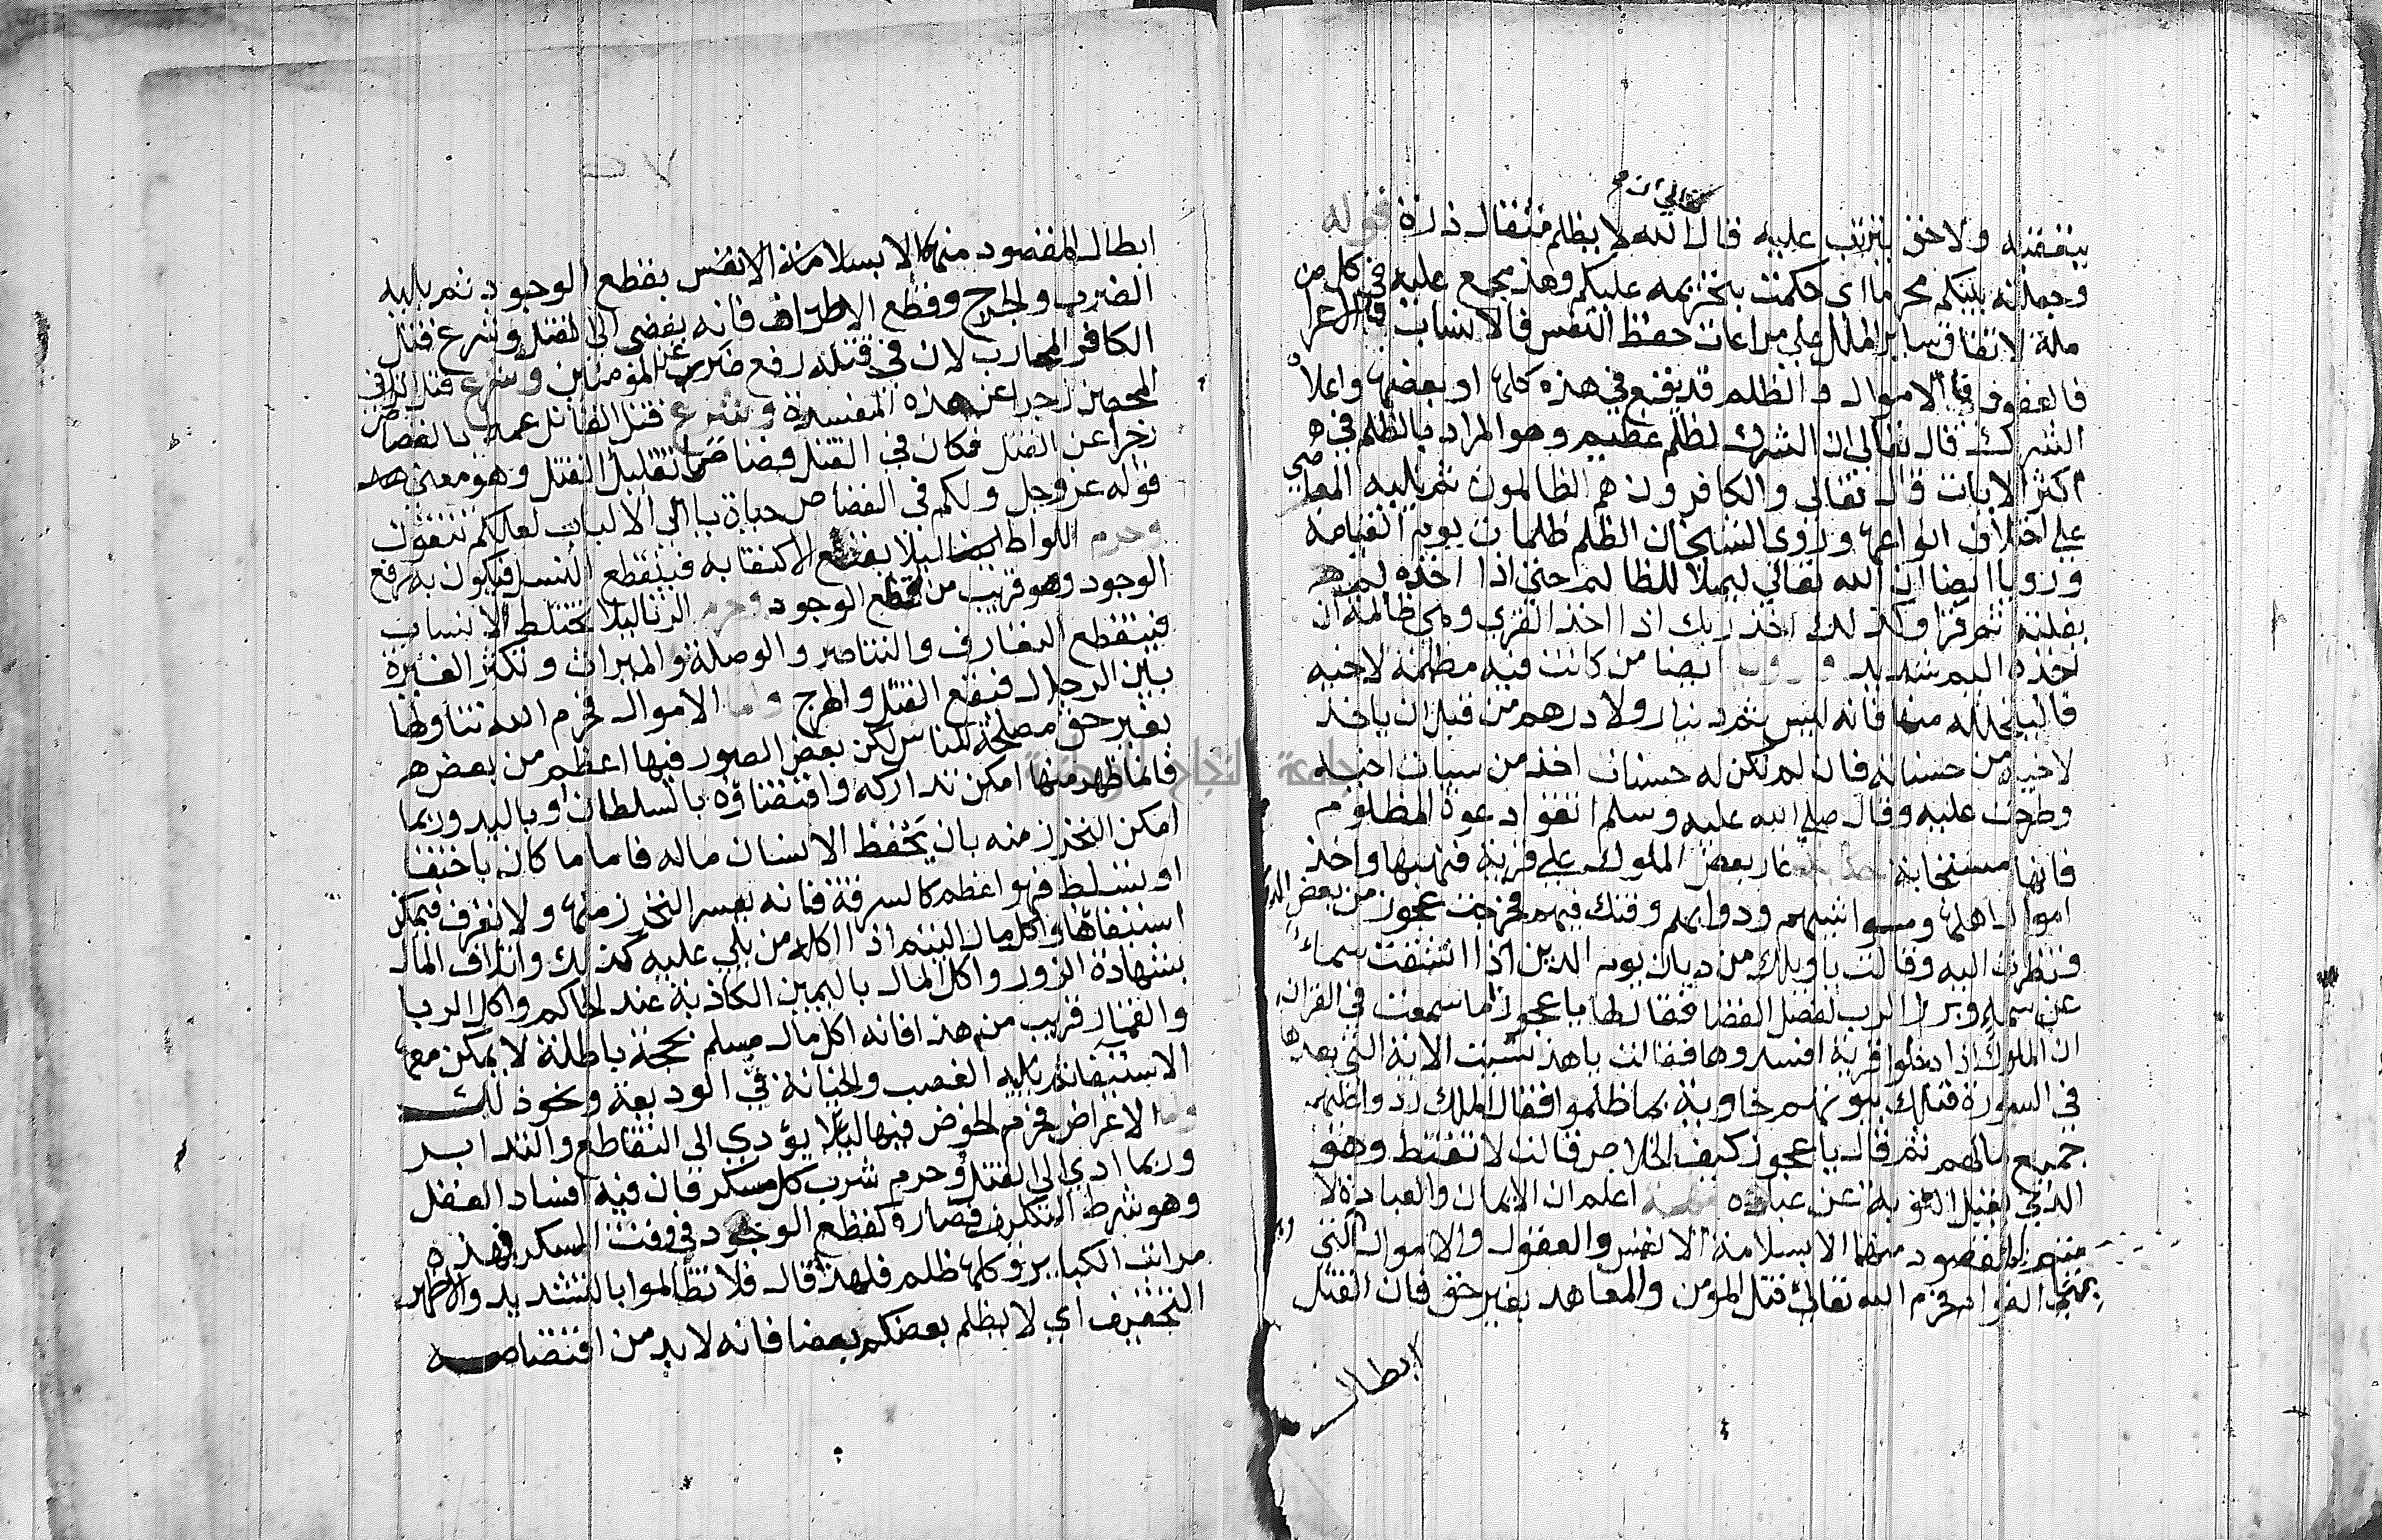 تعالى ان
بنقضه ولا حق يترتب عليه قال الله لا يظلم مثقال ذرة قوله
وجعلته بينكم محرما اى حكمت بتحريمه عليكم وهذا مجمع عليه في كل من
ملة لاتفاق ساير الملل على مراعات حفظ النفس فالانساب فالاعرا
فالعقول فالاموال والظلم قد يقع في هذه كلها او بعضها واعلاه
الشرك قال تعالى ان الشرك لظلم عظيم وهو المراد بالظلم في
اكثر الايات قال تعالى والكافرون هم الظالمون ثم يليه المعاصي
على اختلاف انواعها وروى الشيخان الظلم ظلمات يوم القيامة
ورويا ايضا ان الله تعالى ليملا للظالم حتى اذا اخذه لم
يفلته ثم قرا وكذلك اخذ ربك اذا اخذ القرى وهي ظالمة ان
اخذه اليم شديد ورويا ايضا من كانت فيه مظلمة لاخيه
فاليحلله منها فانه ليس ثم دينار ولا درهم من قبل ان ياخذ
لاخيه من حسناته فان لم تكن له حسنات اخذ من سيات اخيه
وطرحت عليه وقال صلى الله عليه وسلم اتقوا دعوة المظلوم
فانها مستجابة حكاية غار بعض الملوك على قرية فنهبها واخذ
اموال اهلها ومواشيهم ودوابهم وفتك فيهم فخرجت عجوز من بعض
فنظرت اليه وقالت يا ويلك من ديان يوم الدين اذا انشقت سماء
عن سماء وبرز الرب لفصل القضا فقال لها يا عجوز اما سمعت في القران
ان الملوك اذا دخلوا قرية افسدوها فقالت يا هذا نسيت الاية التي بعدها
في السورة فتلك بيوتهم خاوية بما ظلموا فقال الملك ردوا عليهم
جميع مالهم ثم قال يا عجوز كيف الخلاص قالت لا تقنط وهو
الذي يقبل التوبة عن عباده اعلم ان الايمان والعبادة لا
يتم المقصود منها الا بسلامة الانفس والعقول والاموال التي
بها القوام فحرم الله تعالى قتل المومن والمعاهد بغير حق فان القتل
ابطال
ابطال للمقصود منها الا بسلامة الانفس بقطع الوجود ثم يليه
الضرب والجرح وقطع الاطراف فانه يفضي الى القتل وشرع قتل
الكافر المحارب لان في قتله رفع ضرره عن المؤمنين وشرع قتل الزاني
المحصن زجرا عن هذه المفسدة وشرع قتل القاتل عمدا بالقصاص
زجرا عن القتل فكان في القتل قصاصا تقليل القتل وهو معنى
قوله عز وجل ولكم في القصاص حياة يا الي الالباب لعلكم تتقون
وحرم اللواط ايضا ليلا يقطع الاكتفا به فينقطع النسل فيكون به رفع
الوجود وهو قريب من قطع الوجود وحرم الزنا ليلا تختلط الانساب
فينقطع التعارف والتناصر والوصلة والميراث وتكثر الغيرة
بين الرجال فيقع القتل والهرج واما الاموال فحرم الله تناولها
بغير حق مصلحة للناس لكن بعض الصور فيها اعظم من بعض
فالما ظهر منها امكن تداركه واقتضاؤه بالسلطان او باليد وربما
امكن التحرز منه بان يحفظ الانسان ماله فاما ما كان باختفا
او تسلط فهو اعظم كالسرقة فانه يعسر التحرز منها ولا تعرف فيمكن
استيفاها واكل مال اليتيم اذا اكله من يلي عليه كذلك واتلاف المال
بشهادة الزور واكل المال باليمين الكاذبة عند الحاكم واكل الربا
والقمار قريب من هذا فانه اكل مال مسلم بحجة باطلة لا يمكن معها
الاستيفا ثم يليه الغصب والخيانة في الوديعة ونحو ذلك
واما الاعراض فحرم الخوض فيها ليلا يؤدي الى التقاطع والتدابر
وربما ادى الى القتل وحرم شرب كل مسكر فان فيه افساد العقل
وهو شرط التكليف فصار كقطع الوجود في وقت المسكر فهذه
مراتب الكباير وكلها ظلم فلهذا قال فلا تظالموا بالتشديد والاظهر
التخفيف اي لا يظلم بعضكم بعضا فانه لا بد من اقتصاصه
جامعة النجاح الوطنية